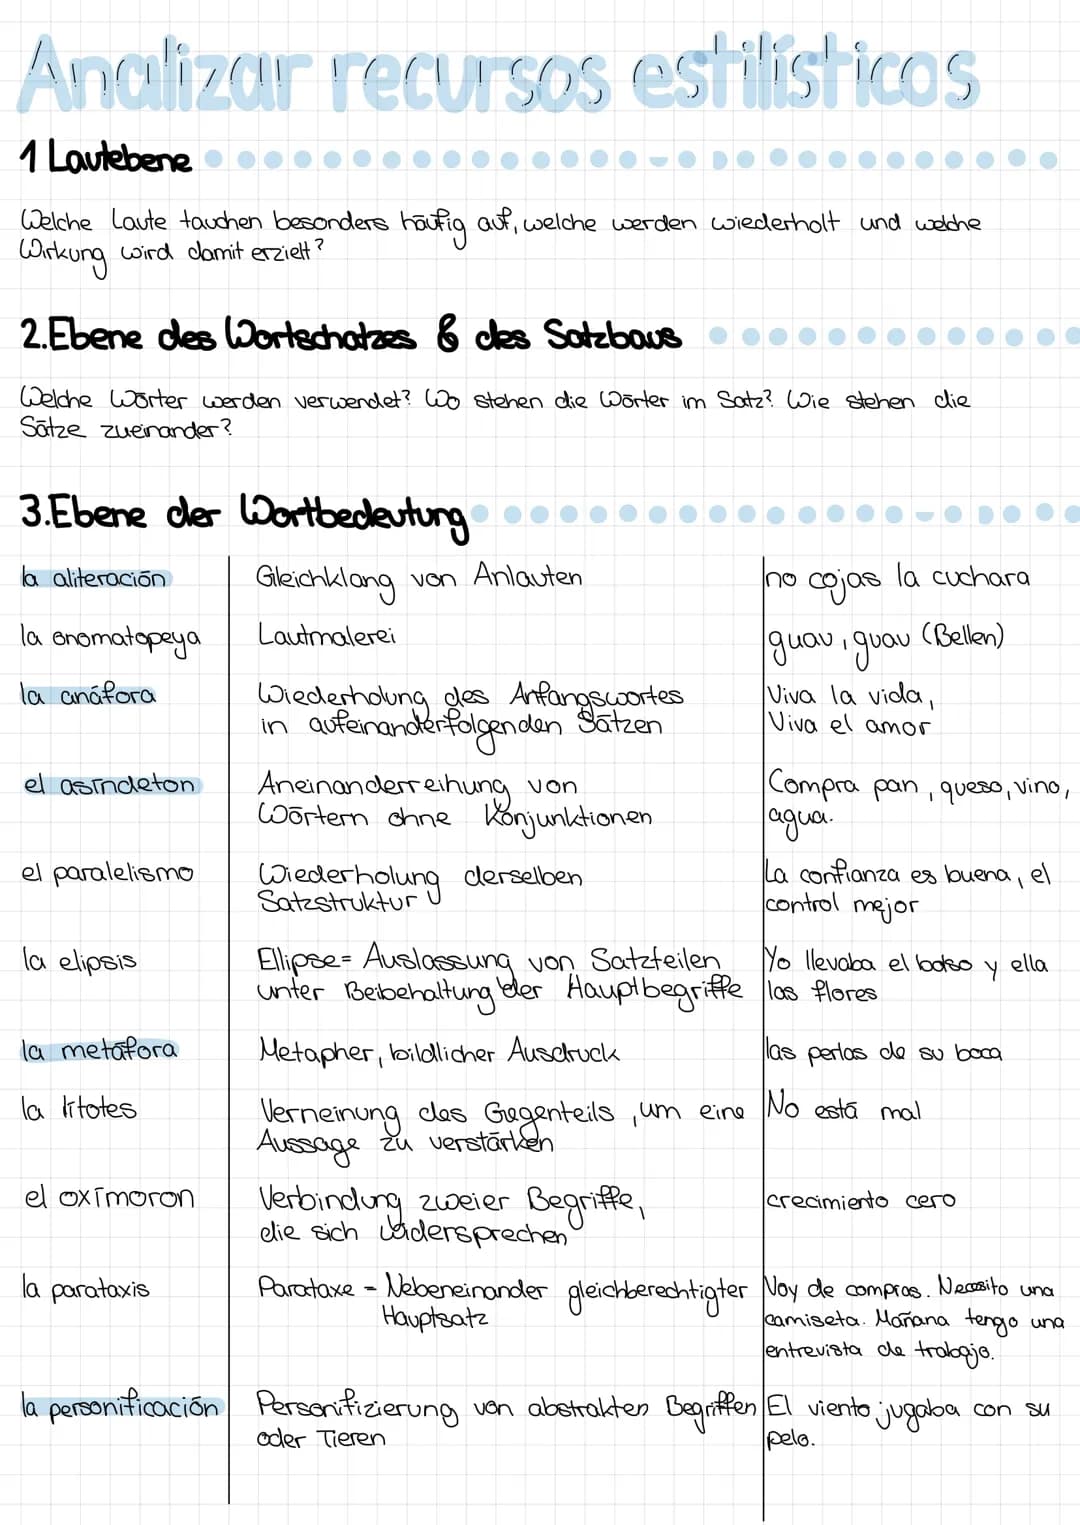 Analizar recursos estilísticos
1 Lautebene
Welche Laute tauchen besonders häufig auf, welche werden wiederholt und welche
Wirkung wird damit erzielt?
2. Ebene des Wortschatzes & des Satzbaus
Welche Wörter werden verwendet? Wo stehen die Wörter im Satz? Wie stehen die
Sätze zueinander?
3. Ebene der Wortbedeutung
la aliteración
Gleichklang von Anlauten
no cojas la cuchara
la onomatopeya
Lautmalerei
guau, guau (Bellen)
la anáfora
Wiederholung des Anfangswortes
in aufeinanderfolgenden Sätzen
Viva la vida,
Viva el amor
el asíndeton
Aneinanderreihung von
Wörtern ohne Konjunktionen
Compra pan, queso, vino,
agua.
el paralelismo
Wiederholung derselben
Satzstruktur
La confianza es buena, el
control mejor
la elipsis
Ellipse = Auslassung von Satzteilen
unter Beibehaltung der Hauptbegriffe
Yo llevaba el bolso y ella
las flores
la metáfora
Metapher, bildlicher Ausdruck
las perlas de su boca
la lítotes
Verneinung des Gegenteils, um eine
Aussage zu verstärken
No está mal
el oxímoron
Verbindung zweier Begriffe,
die sich widersprechen
crecimiento cero
la parataxis
Parataxe - Nebeneinander gleichberechtigter
Hauptsatz
Voy de compras. Necesito una
camiseta. Mañana tengo una
entrevista de trabajo.
la personificación
Personifizierung von abstrakten Begriffen
oder Tieren
El viento jugaba con su
pelo.